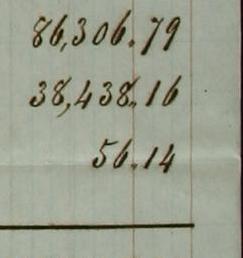 86,306.79
38,438.16
56.14